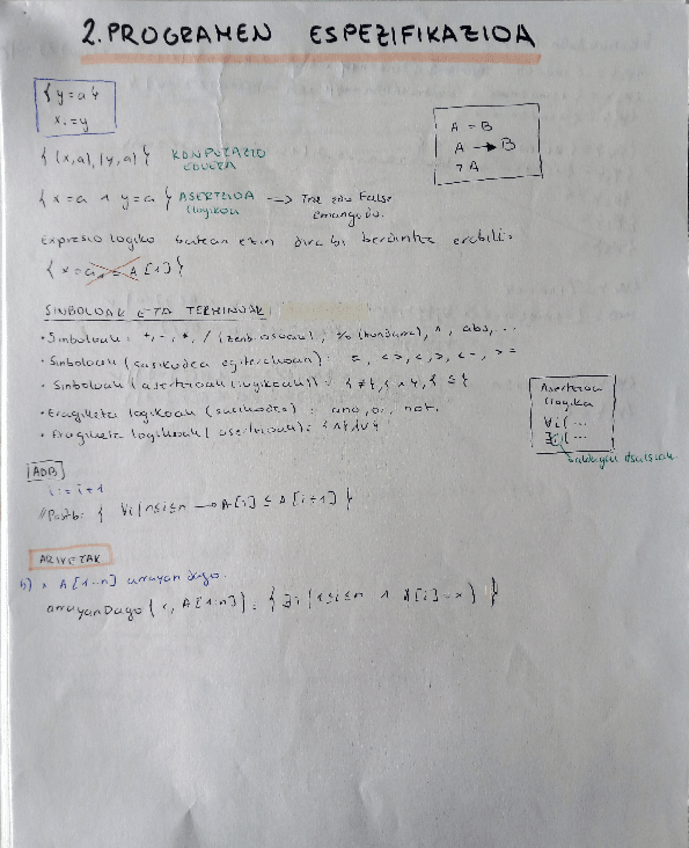 2. PROGRAMEN ESPEZIFIKAZIOA
{y=a}
x:=y
A = B
A → B
¬A
{(x,a),(y,a)} KONPUTAZIO EGOERA
{x=a ∧ y=a} ASERTZIOA logikoa → True edo False emango du.
Expresio logiko batean ezin dira bi berdintza erabili.
{x=a = A[1]}
SINBOLOAK ETA TERMINOAK:
• Sinboloak: +, -, *, / (zati osoa), % (hondarra), ^, abs, ...
• Sinboloak (sasikodea egiterakoan): =, <>, <, >, <=, >=
• Sinboloak (asertzioak (logikoak)): {≠}, {∧}, {≤}
• Eragiketa logikoak (sasikodea): and, or, not.
• Eragiketa logikoak (asertzioak): {∧}{∨}
Asertzioa
logika
∀i(...
∃i(...
aldagai
ADB
i:=i+1
//Postb: { ∀i(1≤i≤n → A[i] ≤ A[i+1] }
ARIKETAK
b) x A[1..n] arrayan dago.
arrayanDago(x, A[1..n]) = {∃i(1≤i≤n ∧ A[i]=x)}